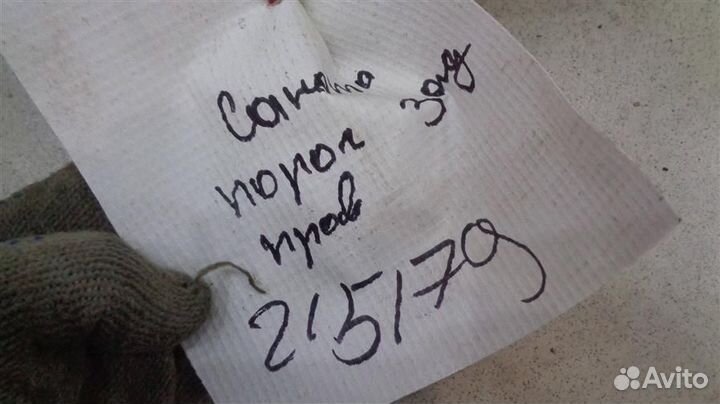 Соната
порог зад
прав
215179
Avito